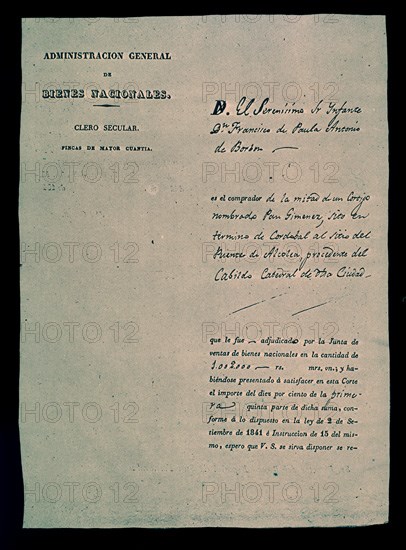 ADMINISTRACION GENERAL
DE
BIENES NACIONALES.
CLERO SECULAR.
FINCAS DE MAYOR CUANTIA.
D. El Serenisimo Sr Ynfante
Dn Francisco de Paula Antonio
de Borbon
es el comprador de la mitad de un Cortijo
nombrado Pan Gimenez, sito en
termino de Cordoba al sitio del
Puente de Alcolea, procedente del
Cabildo Catedral de dha Ciudad
que le fue adjudicado por la Junta de
ventas de bienes nacionales en la cantidad de
1.002000 rs. mrs. vn.; y ha-
biéndose presentado á satisfacer en esta Corte
el importe del diez por ciento de la prime-
ra quinta parte de dicha suma, con-
forme á lo dispuesto en la ley de 2 de Se-
tiembre de 1841 é Instruccion de 15 del mis-
mo, espero que V. S. se sirva disponer se re-
PHOTO 12